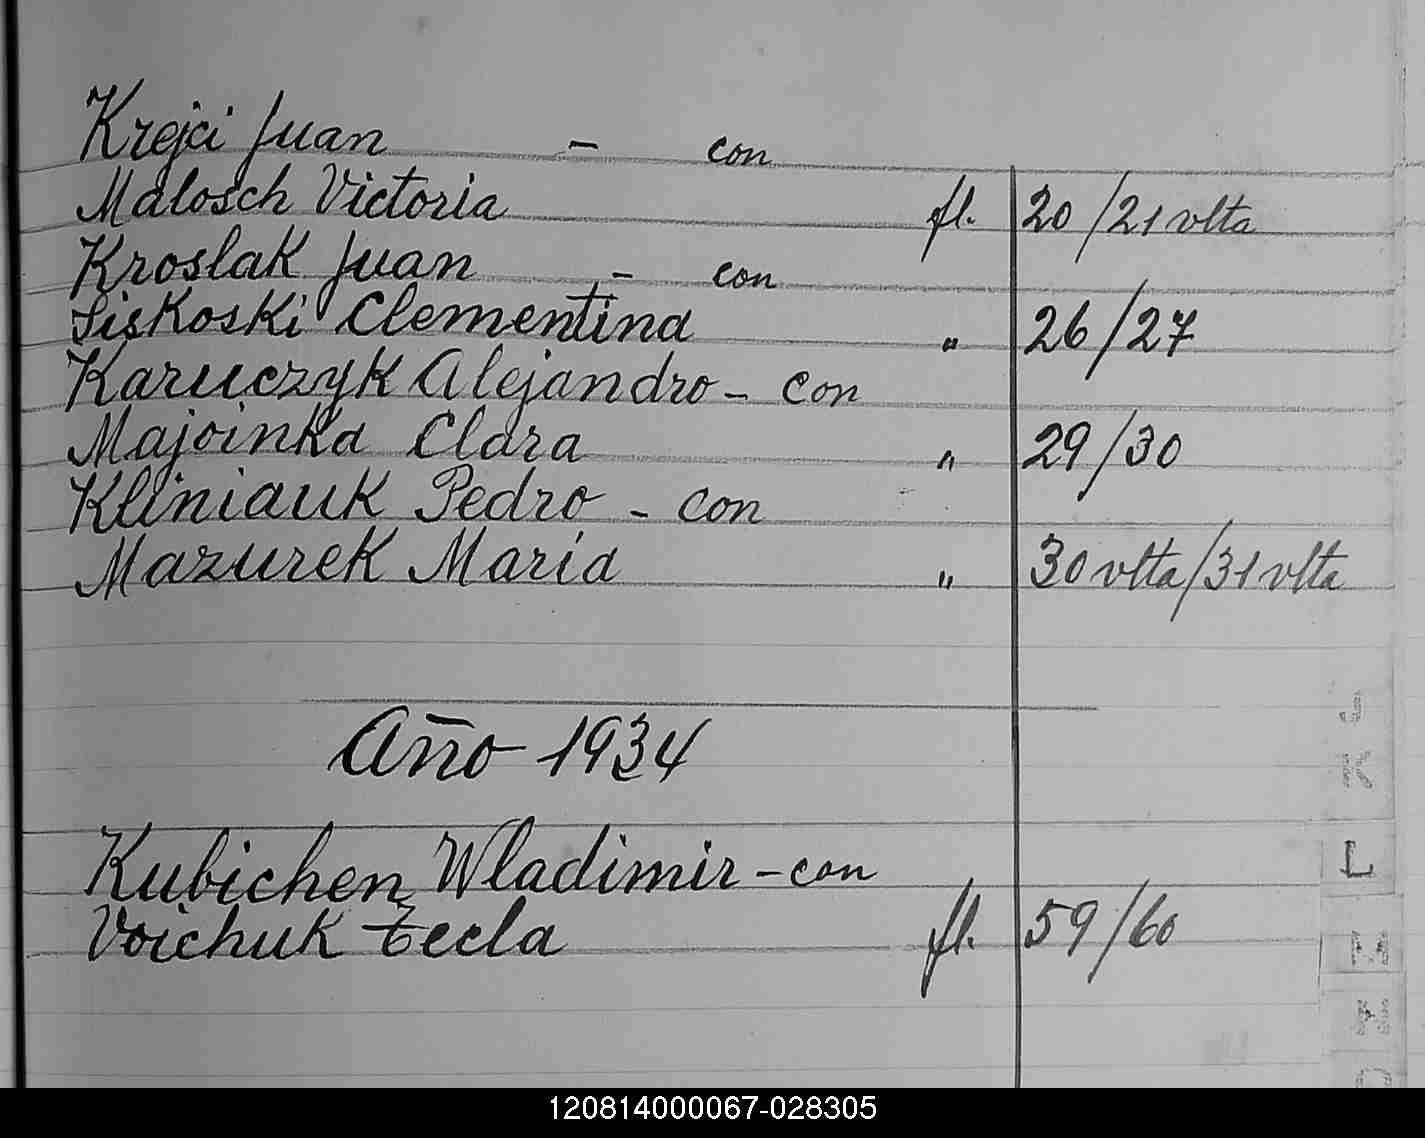 Krejci Juan - con
Malosch Victoria fl. 20/21 vlta
Kroslak Juan - con
Siskoski Clementina " 26/27
Karuczyk Alejandro - con
Majoinka Clara " 29/30
Kliniauk Pedro - con
Mazurek Maria " 30 vlta/31 vlta
Año 1934
Kubichen Wladimir - con
Voichuk Tecla fl. 59/60
L
120814000067-028305